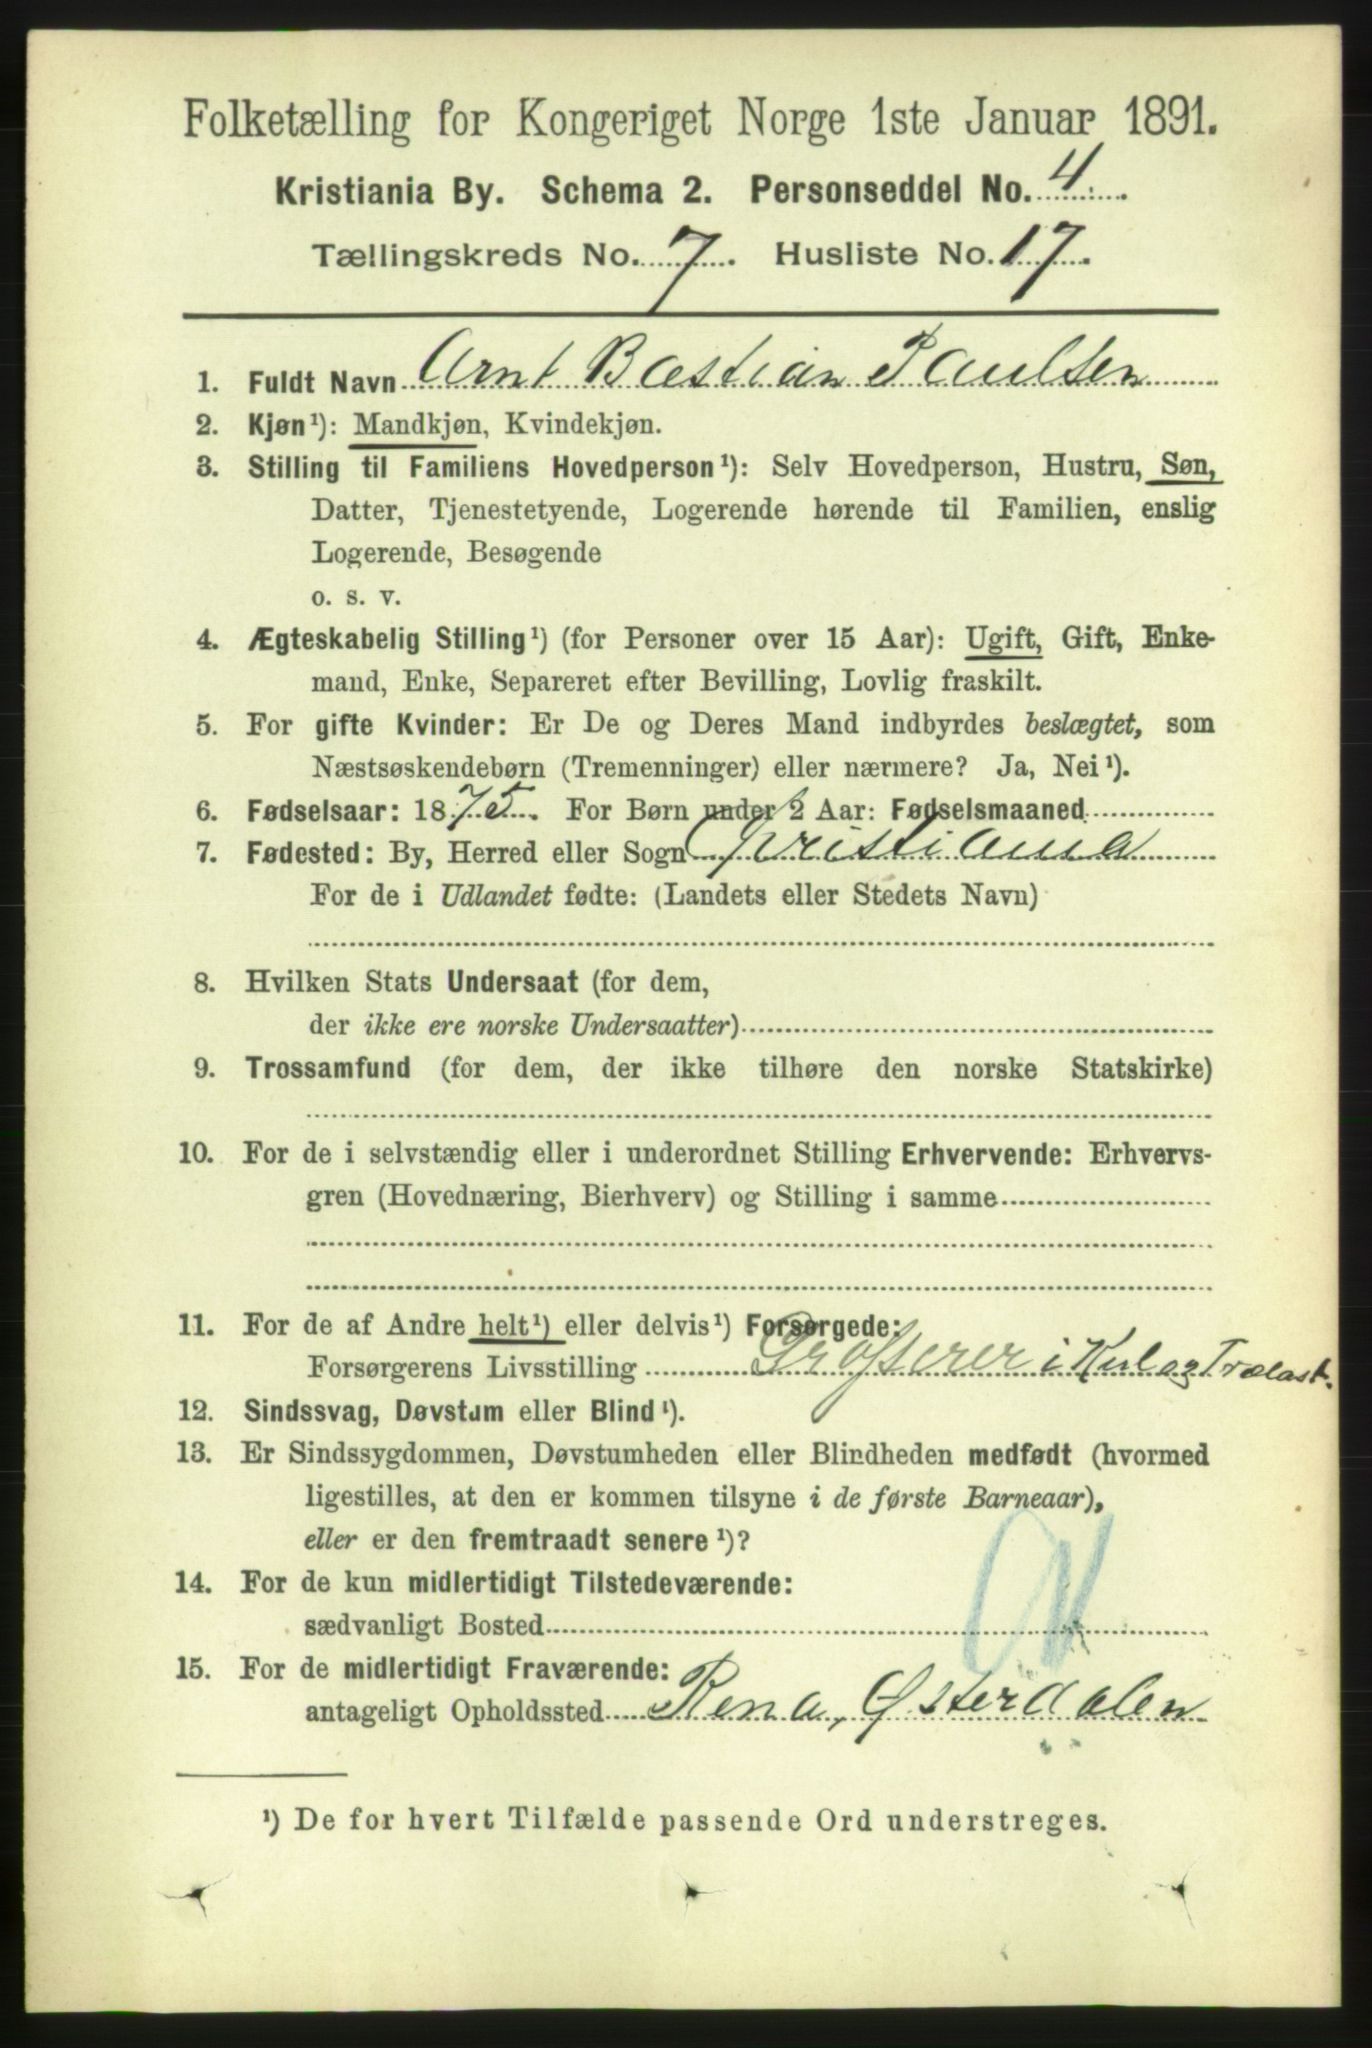 Folketælling for Kongeriget Norge 1ste Januar 1891.
Kristiania By. Schema 2. Personseddel No. 4.
Tællingskreds No. 7. Husliste No. 17.
1. Fuldt Navn Arnt Bastian Paulsen
2. Kjøn¹): Mandkjøn, Kvindekjøn.
3. Stilling til Familiens Hovedperson¹): Selv Hovedperson, Hustru, Søn,
Datter, Tjenestetyende, Logerende hørende til Familien, enslig
Logerende, Besøgende
o. s. v.
4. Ægteskabelig Stilling¹) (for Personer over 15 Aar): Ugift, Gift, Enke-
mand, Enke, Separeret efter Bevilling, Lovlig fraskilt.
5. For gifte Kvinder: Er De og Deres Mand indbyrdes beslægtet, som
Næstsøskendebørn (Tremenninger) eller nærmere? Ja, Nei¹).
6. Fødselsaar: 1875. For Børn under 2 Aar: Fødselsmaaned
7. Fødested: By, Herred eller Sogn Kristiania
For de i Udlandet fødte: (Landets eller Stedets Navn)
8. Hvilken Stats Undersaat (for dem,
der ikke ere norske Undersaatter)
9. Trossamfund (for dem, der ikke tilhøre den norske Statskirke)
10. For de i selvstændig eller i underordnet Stilling Erhvervende: Erhvervs-
gren (Hovednæring, Bierhverv) og Stilling i samme
11. For de af Andre helt¹) eller delvis¹) Forsørgede:
Forsørgerens Livsstilling Grosserer i Kul og Trælast.
12. Sindssvag, Døvstum eller Blind¹).
13. Er Sindssygdommen, Døvstumheden eller Blindheden medfødt (hvormed
ligestilles, at den er kommen tilsyne i de første Barneaar),
eller er den fremtraadt senere¹)?
14. For de kun midlertidigt Tilstedeværende:
sædvanligt Bosted
15. For de midlertidigt Fraværende:
antageligt Opholdssted Rena, Østerdalen
¹) De for hvert Tilfælde passende Ord understreges.